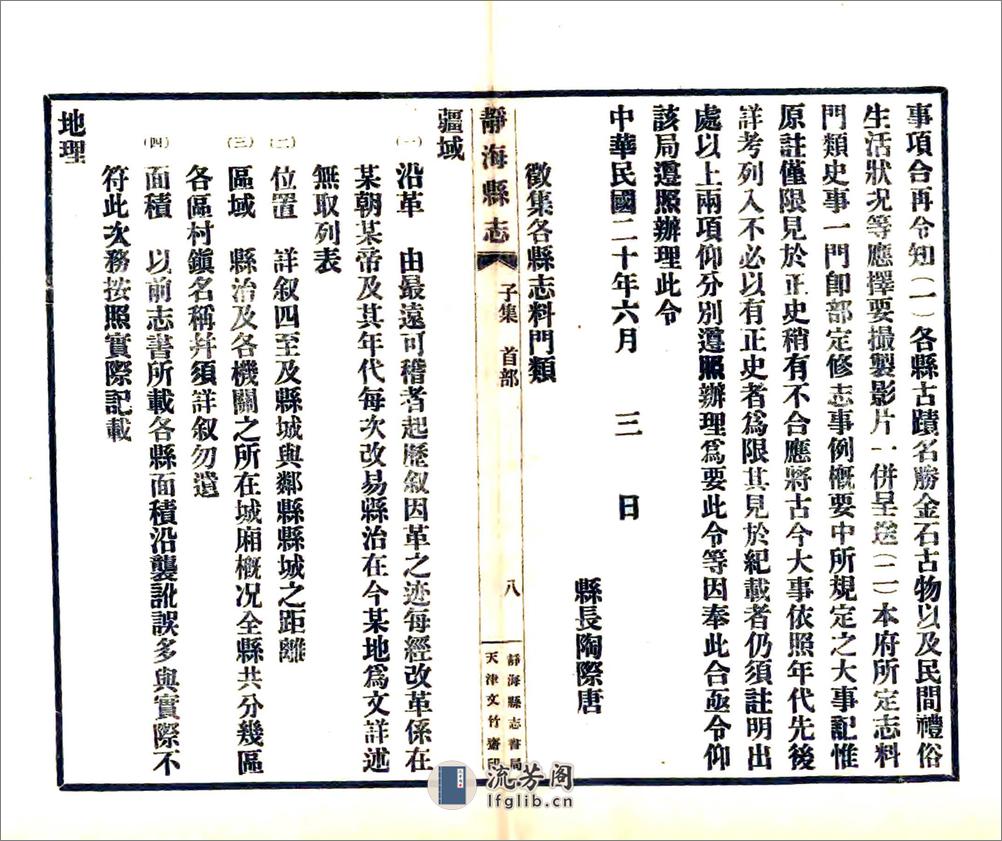 事項合再令知(一)各縣古蹟名勝金石古物以及民間禮俗
生活狀况等應擇要撮製影片一併呈送(二)本府所定志料
門類史事一門卽部定修志事例概要中所規定之大事記惟
原註僅限見於正史稍有不合應將古今大事依照年代先後
詳考列入不必以有正史者爲限其見於紀載者仍須註明出
處以上兩項仰分別遵照辦理爲要此令等因奉此合亟令仰
該局遵照辦理此令
中華民國二十年六月　三　日
縣長陶際唐
徵集各縣志料門類
靜海縣志　子集　首部　八
靜海縣志書局
天津文竹齋印
疆域
(一)沿革　由最遠可稽者起歷叙因革之迹每經改革係在
某朝某帝及其年代每次改易縣治在今某地爲文詳述
無取列表
(二)位置　詳叙四至及縣城與鄰縣縣城之距離
(三)區域　縣治及各機關之所在城廂概况全縣共分幾區
各區村鎭名稱幷須詳叙勿遺
(四)面積　以前志書所載各縣面積沿襲訛誤多與實際不
符此次務按照實際記載
地理
流芳阁
lfglib.cn